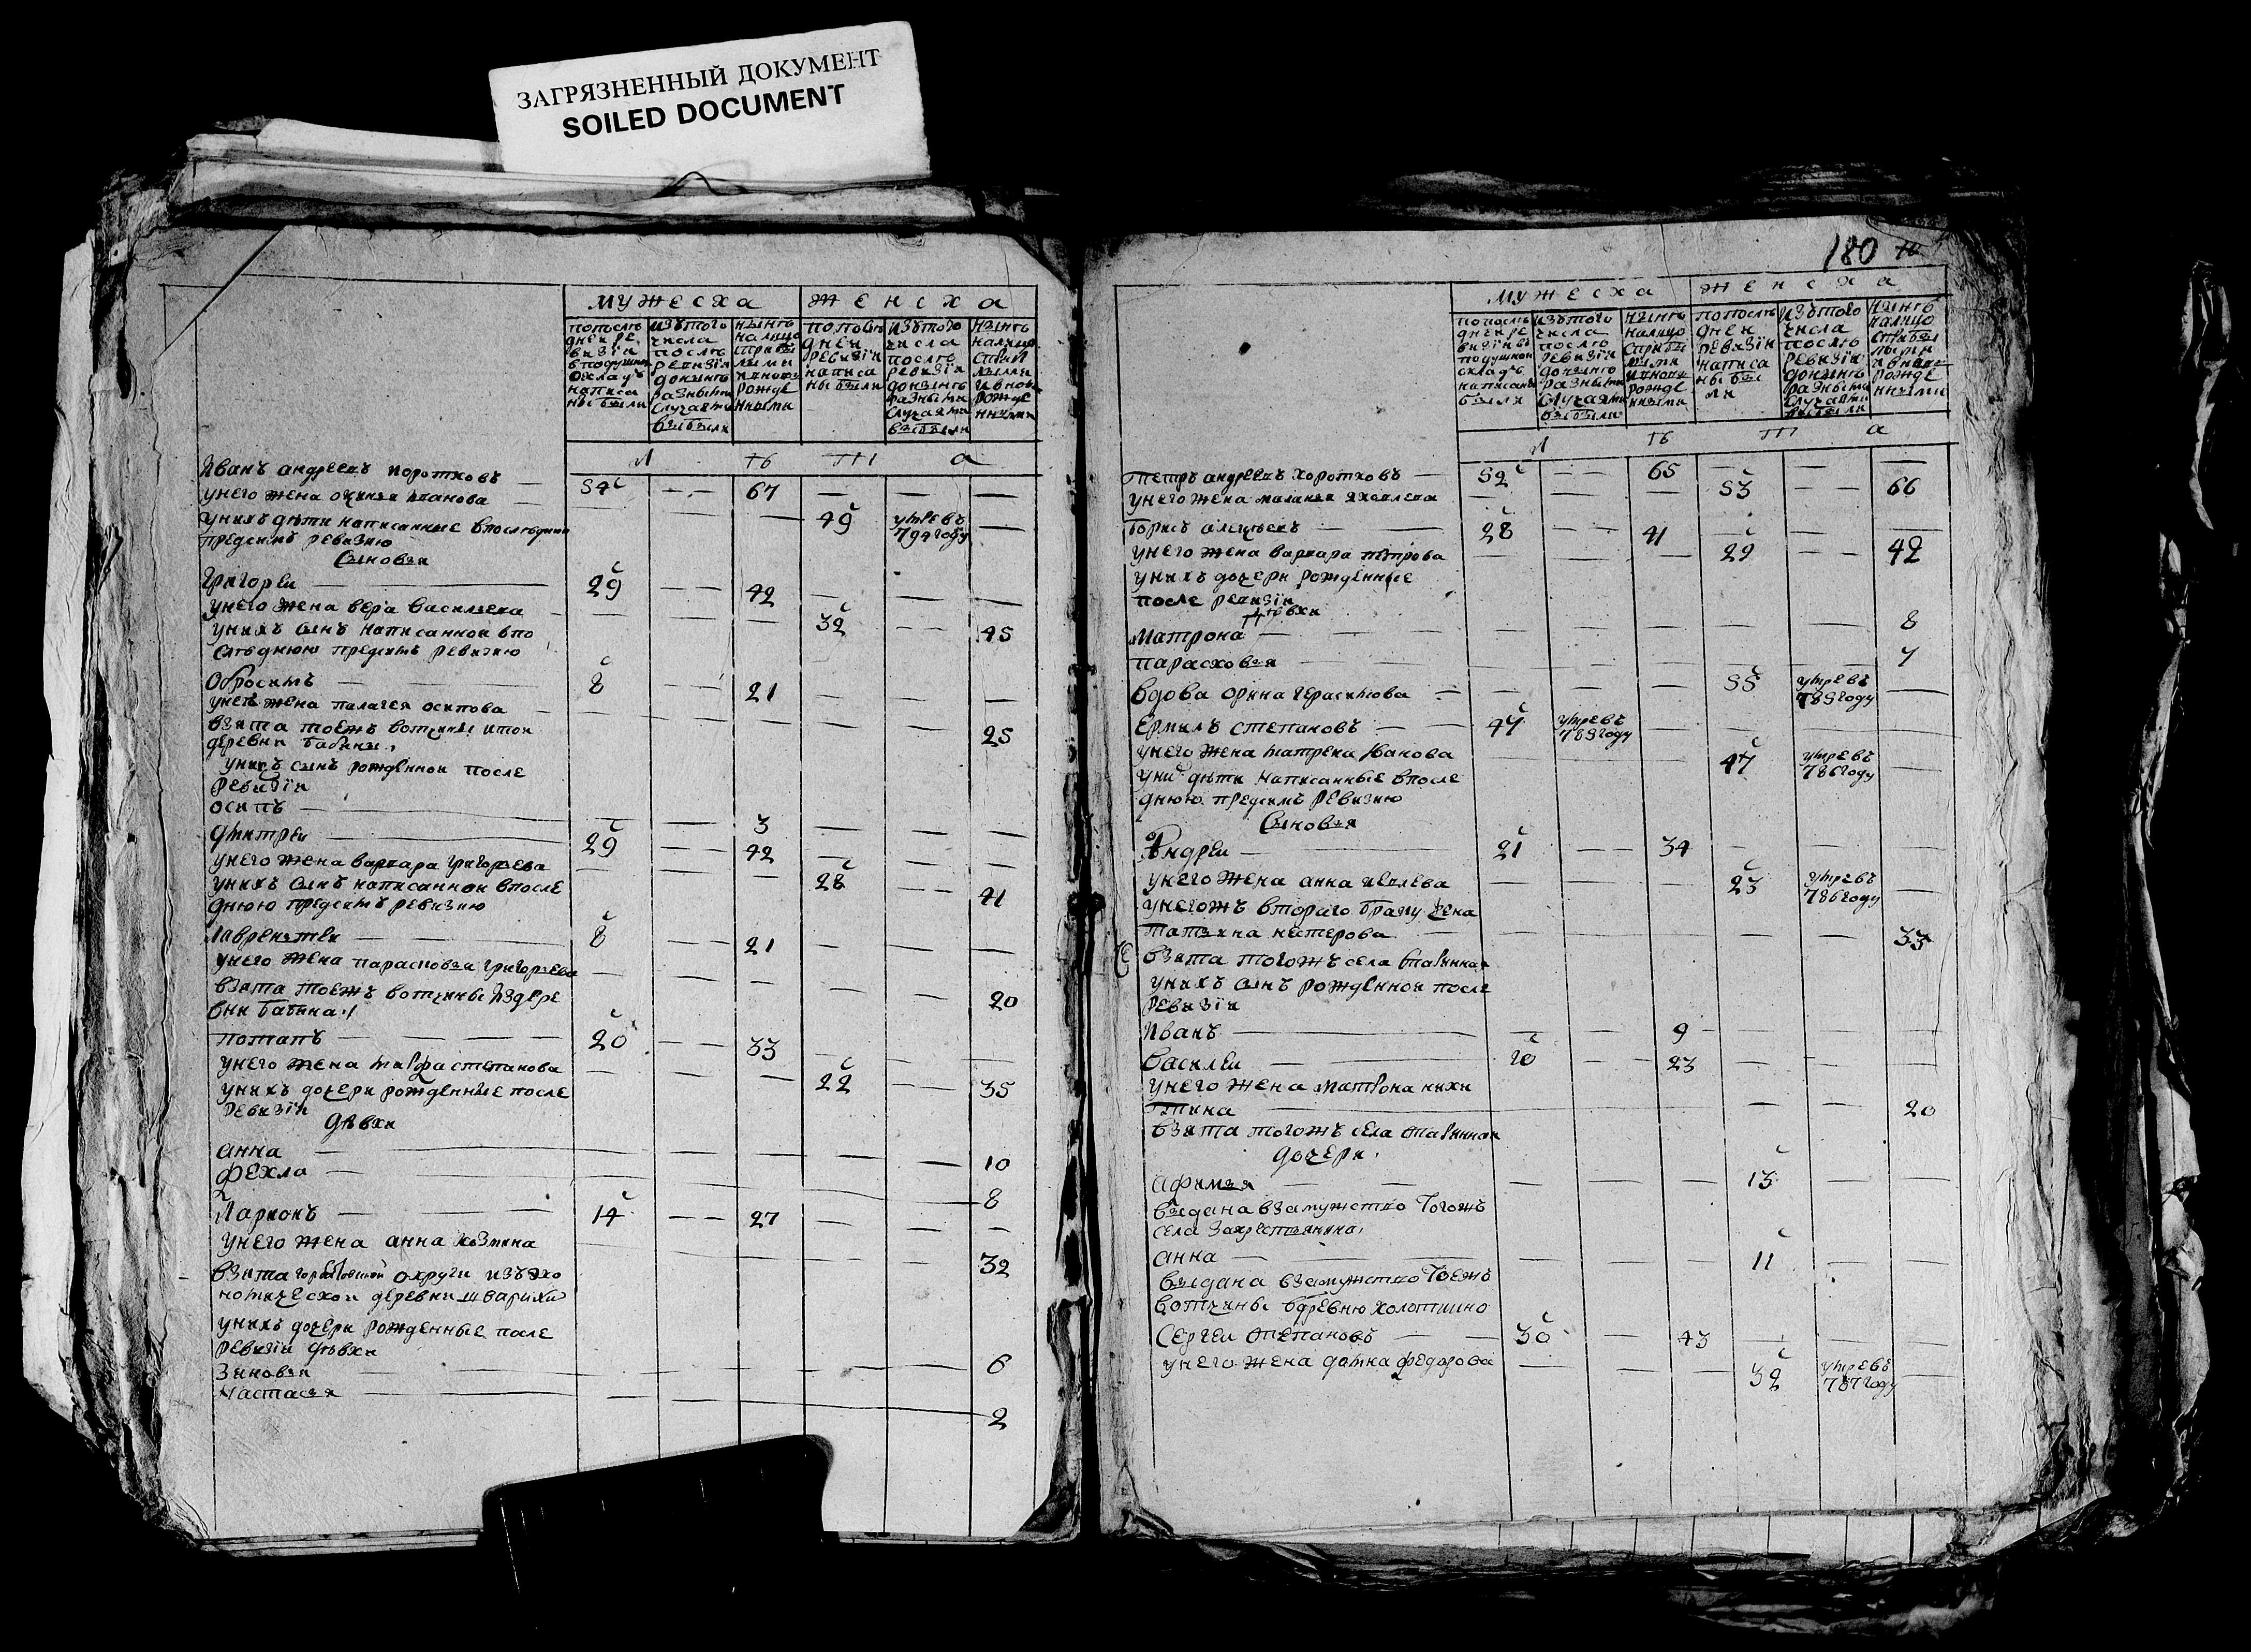 ЗАГРЯЗНЕННЫЙ ДОКУМЕНТ
SOILED DOCUMENT
мужеска женска
попослѣ
дней ре
визіи
вподушной
окладъ
написа
ны были
изътого
числа
послѣ
ревизіи
донынѣ
разными
случаями
выбыли
нынѣ
налицо
спрібы
лыми
ивновь
рожде
нными
попослѣ
дней
ревизіи
написа
ны были
изътого
числа
послѣ
ревизіи
донынѣ
разными
случаями
выбыли
нынѣ
налицо
лыми
ивновь
рожде
нными
л ѣ т а
Иванъ андреевъ коротковъ — 54 — — 67 — — —
унего жена оѯинья иванова — — — 49 умревъ
794 году —
унихъ дѣти написанные впослѣднюю
предсимъ ревизию
Сыновья
Григореи — 29 — — 42 — — —
унего жена вера василиева — — — 32 — — 45
унихъ сынъ написанной впо
слѣднюю предсимъ ревизию
Обросимъ — 8 — — 21 — — —
унего жена палагея осипова — — — — — 25
взята тоежъ вотчины итои
деревни бабина
унихъ сынъ рожденной после
ревизіи
осипъ — — — 3 — — —
дмитреи — 29 — — 42 — — —
унего жена варвара григорьева — — — 28 — — 41
унихъ сынъ написаннои впосле
днюю предсимъ ревизию
лаврентеи — 8 — — 21 — — —
унего жена парасковья григорьева — — — — — 20
взята тоежъ вотчины издере
вни бабина
потапъ — 20 — — 33 — — —
унего жена марфа степанова — — — 22 — — 35
унихъ дочери рожденные после
ревизіи
дѣвки
анна — — — — — — 10
фекла — — — — — — 8
Ларионъ — 14 — — 27 — — —
унего жена анна козмина — — — — — 32
взята округи изъэко
номическои деревни шварихи
унихъ дочери рожденные после
ревизіи дѣвки
Зиновья — — — — — — 6
Настасья — — — — — — 2
180
мужеска женска
попослѣ
дней ре
визіи въ
подушной
окладъ
написаны
были
изътого
числа
послѣ
ревизіи
донынѣ
разными
случаями
выбыли
нынѣ
налицо
спрібы
лыми
ивновь
рожде
нными
попослѣ
дней
ревизіи
написа
ны бы
ли
изътого
числа
послѣ
ревизіи
донынѣ
разными
случаями
выбыли
нынѣ
налицо
спрібы
лыми
ивновь
рожде
нными
л ѣ т а
Петръ андреевъ коротковъ — 52 — — 65 — — —
унего жена маланья яковлева — — — 53 — — 66
борисъ алиѯѣевъ — 28 — — 41 — — —
унего жена варвара петрова — — — 29 — — 42
унихъ дочери рожденные
после ревизіи
дѣвки
Матрона — — — — — — 8
парасковья — — — — — — 7
вдова орина герасимова — — — — 55 умревъ
789 году —
ермилъ степановъ — 47 умревъ
789 году — — — —
унего жена матрена иванова — — — 47 умревъ
786 году —
унихъ дѣти написанные впосле
днюю предсимъ ревизию
Сыновья
Андреи — 21 — — 34 — — —
унего жена анна иевлева — — — 23 умревъ
786 году —
унегожъ второго браку жена
татьяна нестерова — — — — — — 33
взята тогожъ села
унихъ сынъ рожденнои после
ревизіи
Иванъ — — — 9 — — —
василеи — 10 — — 23 — — —
унего жена матрона ники
тина — — — 20
взята тогожъ села
дочери
афимья — — — — 13 — —
выдана взамужство тогожъ
села закрестьянина
анна — — — — 11 — —
выдана взамужство тоежъ
вотчины вдревню холотиино
Сергеи степановъ — 30 — 43 — — —
унего жена домна федорова — — — 32 умревъ
787 году —